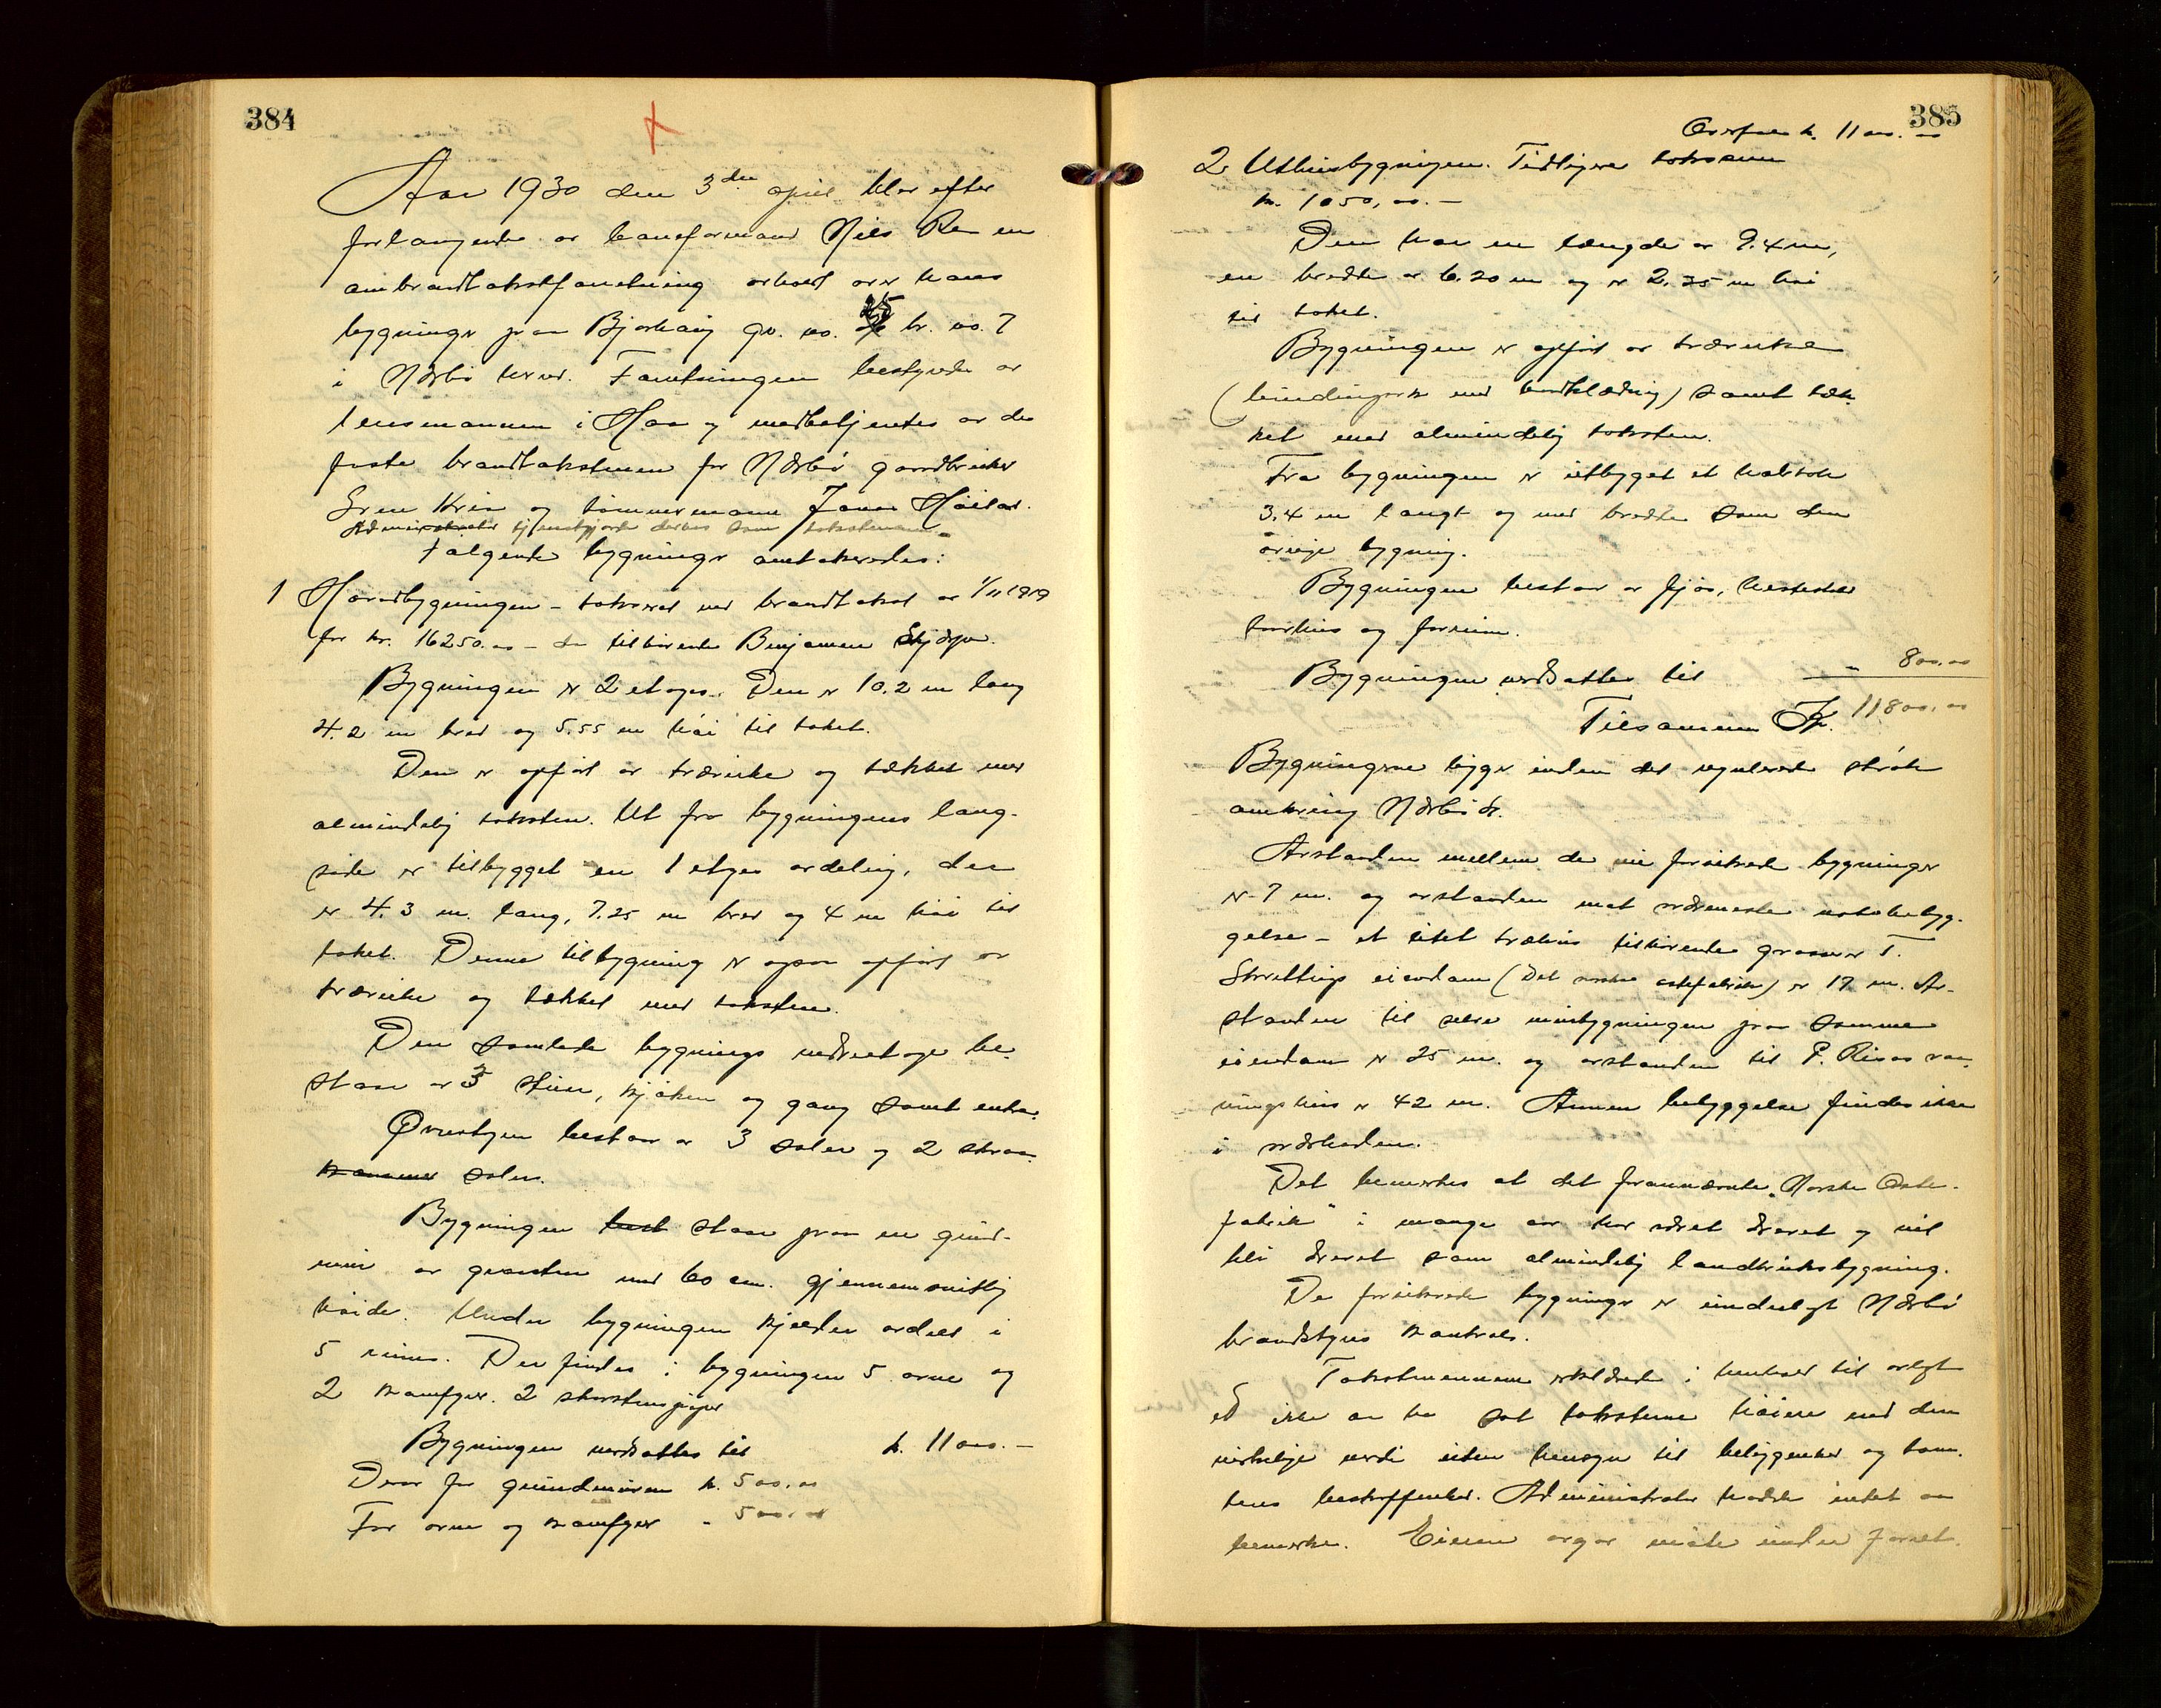 384
Aar 1930 den 3die april blev efter
forlangende av baneformand Niels Re en
ombrandtakstforretning avholdt over hans
bygninger paa Bjorhaug gr. no. 25 br. no. 7
i Nærbø herred. Forretningen bestyredes av
lensmannen i Haa og medbetjentes av de
faste brandtakstmenn for Nærbø gaardbruker
og tømmermann Jonas
tjenstgjorde derhos som takstmann.
Følgende bygninger omtakseredes:
1 Hovedbygningen - taksert ved brandtakst av 1/11 1919
for kr. 16250.00 - da tilhørende Benjamin
Bygningen er 2 etages. Den er 10.2 m lang
4.2 m bred og 5.55 m høi til taket.
Den er opført av trævirke og tækket med
almindelig taksten. Ut fra bygningens lang-
side er tilbygget en 1 etages avdeling, den
er 4.3 m. lang, 7.25 m bred og 4 m høi til
taket. Denne tilbygning er ogsaa opført av
trævirke og tækket med taksten.
Den samlede bygnings nedreetage be-
staar av 3 stuer, kjøken og gang samt entre.
Øvreetagen bestaar av 3 saler og 2 skraa-
kammer saler.
Bygningen best staar paa en grund-
mur av graasten med 60 cm. gjennemsnitlig
høide. Under bygningen kjelder avdelt i
5 rums. Der findes i bygningen 5 ovne og
2 komfyrer. 2 skorstenspiper
Bygningen verdsattes til k. 11000.-
Derav for grundmuren k. 500.00
For ovne og komfyrer - 500.00
385
Overført k. 11000.00
2. Uthusbygningen. Tidligere takstsum
kr. 1050,00.-
Den har en længde av 9.4 m,
en bredde av 6.20 m og er 2.25 m høi
til taket.
Bygningen er opført av trævirke
(bindingverk med bordklædning) samt tæk-
ket med almindelig taksten.
Fra bygningen er utbygget et halvtak
3.4 m langt og med bredde som den
øvrige bygning.
Bygningen bestaar av fjøs, hestestald
torvhus og forrum.
Bygningen verdsattes til - 800.00
Tilsammen Kr. 11800.00
Bygningerne ligger inden det regulerede strøk
omkring Nærbø st.
Avstanden mellem de nu forsikrede bygninger
er 7 m. og avstanden mot nærmeste nabobebyg-
gelse - et litet træhus tilhørende grosserer T.
Skrettings eiendom (Det norske ostefabrik) er 17 m. Av-
standen til selve murbygningen paa samme
eiendom er 25 m. og avstanden til P. Risas vaa-
ningshus er 42 m. Annen bebyggelse findes ikke
i nærheden.
Det bemerkes at det forannævnte „Norske Oste-
fabrik" i mange aar har været drevet og vil
bli drevet som almindelig landbruksbygning.
De forsikrede bygninger er underlagt Nærbø
brandstyres kontrol.
Takstmennene erklærede i henhold til avlagt
ed ikke at ha sat taksterne høiere end den
virkelige verdi uten hensyn til beliggenhed og tom-
tens beskaffenhed. Administrator hadde intet at
bemerke. Eieren avgav møte under forret-